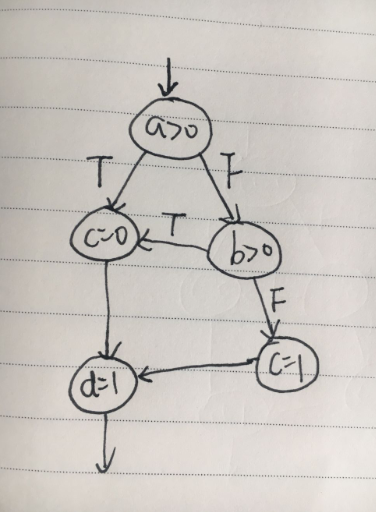 a>0
T F
c=0 T b>0
F
d=1 c=1